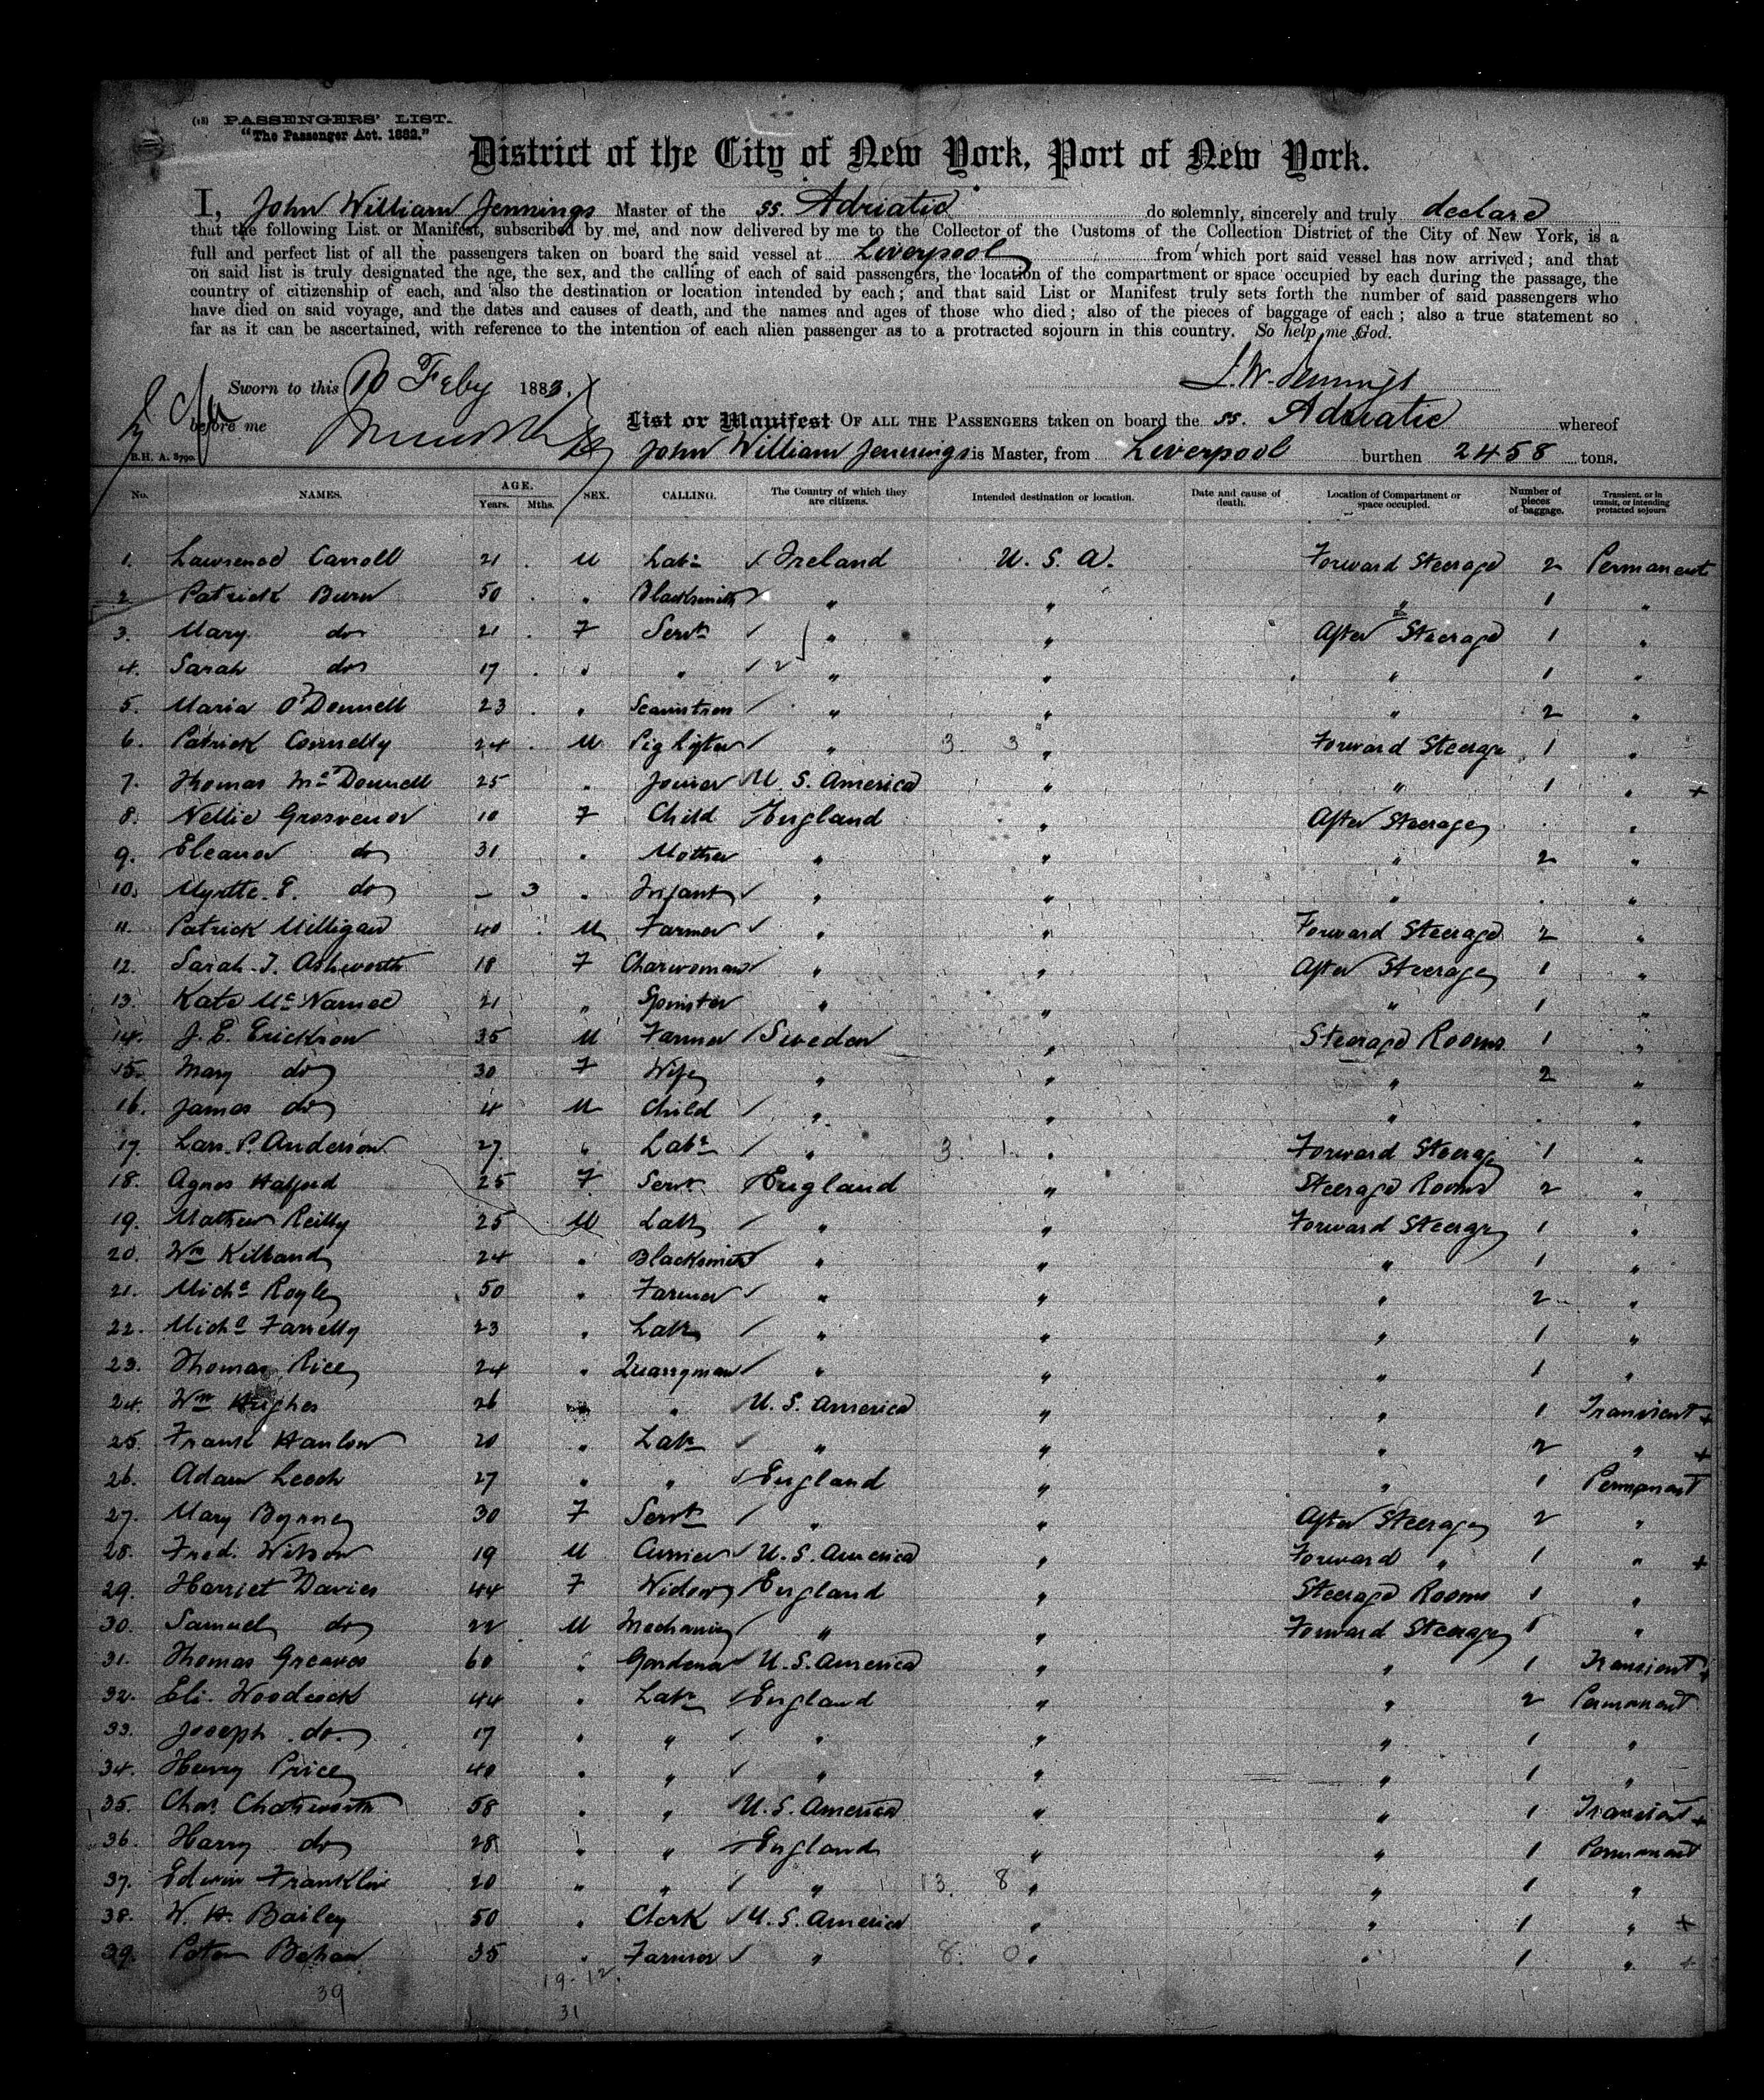 (18) PASSENGERS' LIST.
"The Passenger Act. 1882."
District of the City of New York, Port of New York.
I, John William Jennings Master of the ss. Adriatic do solemnly, sincerely and truly declare
that the following List or Manifest, subscribed by me, and now delivered by me to the Collector of the Customs of the Collection District of the City of New York, is a
full and perfect list of all the passengers taken on board the said vessel at Liverpool from which port said vessel has now arrived; and that
on said list is truly designated the age, the sex, and the calling of each of said passengers, the location of the compartment or space occupied by each during the passage, the
country of citizenship of each, and also the destination or location intended by each; and that said List or Manifest truly sets forth the number of said passengers who
have died on said voyage, and the dates and causes of death, and the names and ages of those who died; also of the pieces of baggage of each; also a true statement so
far as it can be ascertained, with reference to the intention of each alien passenger as to a protracted sojourn in this country. So help me God.
Sworn to this 10 Feby 1883. J. W. Jennings
before me List or Manifest OF ALL THE PASSENGERS taken on board the ss. Adriatic whereof
B.H. A. 8790. John William Jennings is Master, from Liverpool burthen 2458 tons.
No. NAMES. AGE. Years. Mths. SEX. CALLING. The Country of which they are citizens. Intended destination or location. Date and cause of death. Location of Compartment or space occupied. Number of pieces of baggage. Transient, or in transit, or intending protacted sojourn
1. Lawrence Carroll 21 M Labr Ireland U. S. A. Forward Steerage 2 Permanent
2 Patrick Burn 50 " Blacksmith " " " 1 "
3. Mary do 21 F Servt " " After Steerage 1 "
4. Sarah do 17 " " 2 " " " 1 "
5. Maria O'Donnell 23 " Seamstress " " " 2 "
6. Patrick Connelly 24 M " 3 3 " Forward Steerage 1 "
7. Thomas McDonnell 25 " Joiner U. S. America " " 1 " +
8. Nellie Grosvenor 10 F Child England " After Steerage "
9. Eleanor do 31 " Mother " " " 2 "
10. Myrtle. E. do - 3 " Infant " " " "
11. Patrick Milligan 40 M Farmer " " Forward Steerage 2 "
12. Sarah. J. Ashworth 18 F Charwoman " " After Steerage 1 "
13. Kate McNamee 21 " Spinster " " " 1 "
14. J. E. Erickson 35 M Farmer Sweden " Steerage Rooms 1 "
15. Mary do 30 F Wife " " " 2 "
16. James do 4 M Child " " " "
17. Lars. P. Anderson 27 " Labr " 3 1 " Forward Steerage 1 "
18. Agnes Halford 25 F Servt England " Steerage Rooms 2 "
19. Mathew Reilly 25 M Labr " " Forward Steerage 1 "
20. Wm Kilband 24 " Blacksmith " " " 1 "
21. Michl Rogley 50 " Farmer " " " 2 "
22. Michl Farrelly 23 " Labr " " " 1 "
23. Thomas Rice 24 " Quarryman " " " 1 "
24. Wm Hughes 26 " " U. S. America " " 1 Transient +
25. Frank Hanlon 20 " Labr " " " 2 " +
26. Adam Leech 27 " " England " " 1 Permanent
27. Mary Byrne 30 F Servt " " After Steerage 2 "
28. Fred. Wilson 19 M Currier U. S. America " Forward " 1 " +
29. Harriet Davies 44 F Widow England " Steerage Rooms 1 "
30. Samuel do 22 M Mechanic " " Forward Steerage 1 "
31. Thomas Greaves 60 " Gardener U. S. America " " 1 Transient +
32. Eli. Woodcock 44 " Labr England " " 2 Permanent
33. Joseph do. 17 " " " " " 1 "
34. Henry Price 40 " " " " " 1 "
35. Chas. Chatsworth 58 " " U. S. America " " 1 Transient +
36. Harry do 28 " " England " " 1 Permanent
37. Edwin Franklin 20 " " " 13. 8 " " 1 "
38. W. H. Bailey 50 " Clerk U. S. America " " 1 " +
39. Behan 35 " Farmer " 8. 0 " " 1 " +
39 19-12.
31